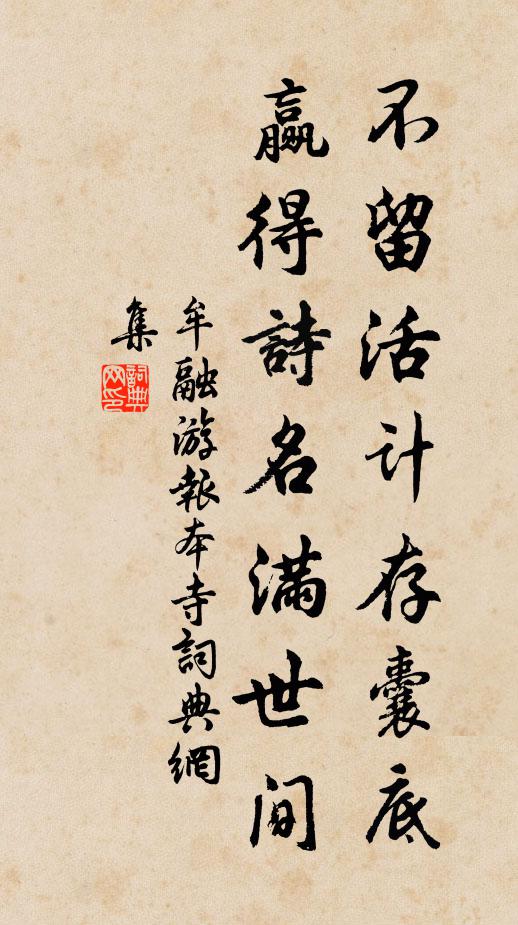 不留活计存囊底
赢得詩名满世间
牟融游報本寺詞典網
集
詞典网印